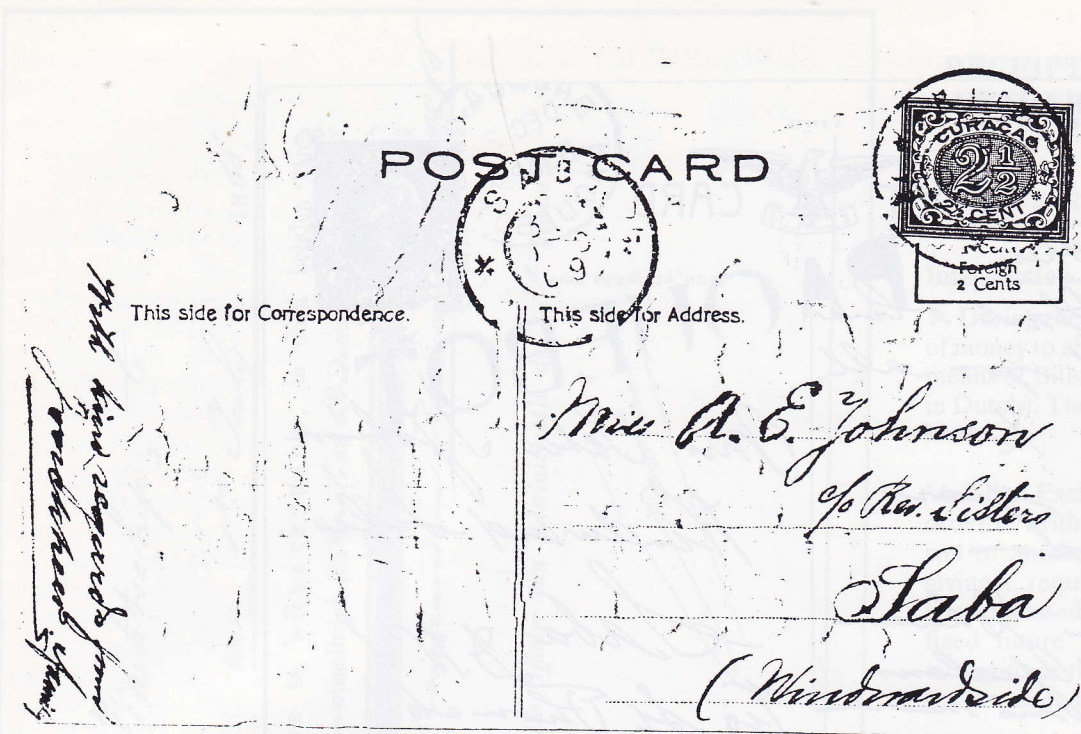 POST CARD
CURACAO
2 1/2
2½ CENT
Foreign
2 Cents
This side for Correspondence.
This side for Address.
With kind regards from
& family
Miss A. E. Johnson
c/o Rev. Sisters
Saba
(Windwardside)